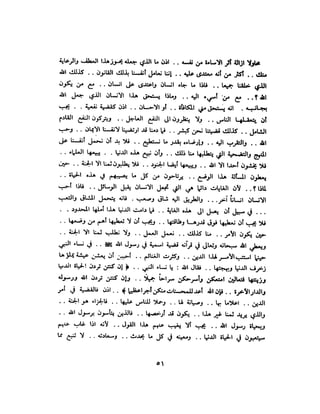 محاولا ازالة أثر الاساءة من نفسه .. اذن ما الذي جعله يحوز هذا العطف والرعاية
منك .. أكثر من أنه معتدى عليه .. إننا نعامل أنفسنا بذلك القانون .. كذلك الله
الذي خلقنا جميعا .. فاذا ما جاء انسان واعتدى على انسان .. مع من يكون
الله ؟ .. مع من أسيء اليه .. وماذا يستحق هذا الانسان الذي جعل الله
بجانبه .. انه يستحق مني المكافأة .. أو الاحسان .. اذن كقضية نفعية .. يجب
أن يتعقلها الناس .. ولا ينظرون الى النفع العاجل .. ويتركون النفع القادم
الشامل .. كذلك قضيتنا نحن كبشر .. فما دمنا قد ارتضينا لأنفسنا الايمان .. وحب
الله .. والتقرب اليه .. وإرضاءه بقدر ما نستطيع .. فلا بد أن نحمل أنفسنا على
المنهج والتضحية التي يتطلبها منا ذلك .. وأن نبيع هذه الدنيا .. يبيعها العلماء ..
فلا يخشون أحدا الا الله .. ويبيعها أيضا الجنود .. فلا يطلبون ثمنا الا الجنة .. حين
يعطون المسألة هذا الوضع .. يرتاحون من كل ما يصيبهم في هذه الحياة ..
لماذا ؟ .. لأن الغايات دائما هي التي تجعل الانسان يقبل الوسائل .. فاذا أحب
الانسان انسانا آخر .. والطريق اليه شاق وصعب .. فانه يتحمل المشاق والتعب
... في سبيل أن يصل الى هذه الغاية .. فما دامت الدنيا هذا أملها المحدود . .
فلا يجب أن نعطيها فوق قدرها وطاقتها .. ويجب أن لا نعطيها أهم من وضعها ..
حين يكون الأمر .. منا كذلك .. نعمل العمل .. ولا نطلب ثمنا الا الجنة ..
ويعطي الله سبحانه وتعالى في قرآنه قضية اسمية في رسول الله ﷺ .. في نساء النبي
حينما استتب الأمر لهذا الدين .. وكثرت الغنائم .. أحببن أن يعشن عيشة يملؤها
زخرف الدنيا وبهجتها .. فقال الله : يا نساء النبي .. ﴿ إن كنتن تردن الحياة الدنيا
وزينتها فتعالين امتعكن وأسرحكن سراحاً جميلاً .. وإن كنتن تردن الله ورسوله
والدار الآخرة .. فإن الله أعد للمحسنات منكن أجرا عظيما ﴾ .. اذن فالقضية في أمر
الدين .. اعلاما بها .. وصيانة لها .. وحملا للناس عليها .. فالجزاء هو الجنة ..
والذي يريد ثمنا غير هذا .. يكون قد أرخصها .. فالذين يتأسون برسول الله ..
وبحياة رسول الله .. يجب ألا يغيب عنهم هذا القول .. لأنه اذا غاب عنهم
سيتعبون في الحياة الدنيا .. ومعيته في كل ما يحدث .. وسعادته .. لا تنبع مما
٥٦